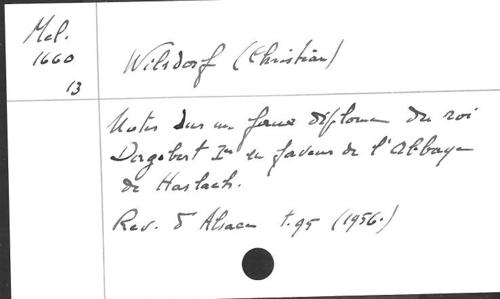 Mel.
1660
13
Wilsdorf (Christian)
Notes sur un faux diplome du roi
Dagobert Ier en faveur de l'Abbaye
de Haslach.
Rev. d'Alsace t. 95 (1956.)